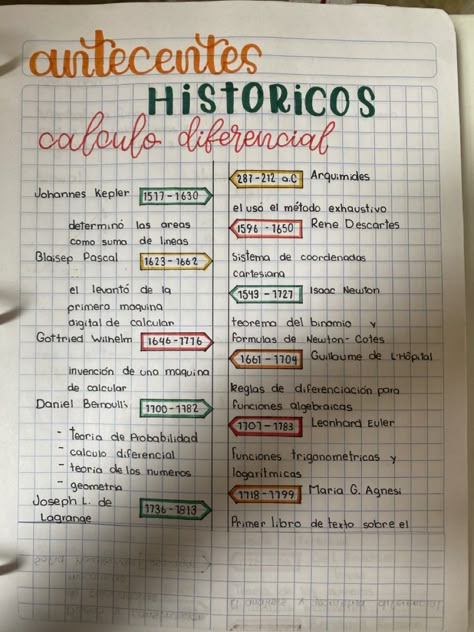 antecentes
HISTORICOS
calculo diferencial
287-212 a.C Arquimides
Johannes Kepler 1517-1630
el usó el método exhaustivo
determinó las areas
como suma de lineas
1596-1650 Rene Descartes
Blaisep Pascal 1623-1662
Sistema de coordenadas
cartesiana
el levantó de la
primera maquina
digital de calcular
1543-1727 Isaac Newton
teorema del binomio y
formulas de Newton-Cotes
Gottried Wilhelm 1646-1716
1661-1704 Guillaume de L'Hôpital
invención de una maquina
de calcular
Reglas de diferenciación para
funciones algebraicas
Daniel Bernoulli 1700-1782
1707-1783 Leonhard Euler
- teoria de Probabilidad
- calculo diferencial
- teoria de los numeros
- geometria
funciones trigonometricas y
logaritmicas
1718-1799 Maria G. Agnesi
Joseph L. de
Lagrange 1736-1813
Primer libro de texto sobre el